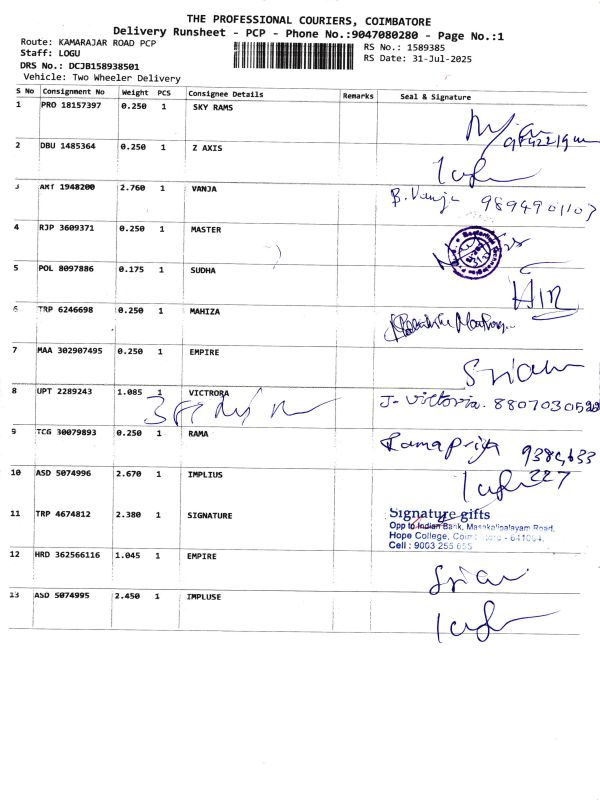 THE PROFESSIONAL COURIERS, COIMBATORE
Delivery Runsheet - PCP - Phone No.:9047080280 - Page No.:1
Route: KAMARAJAR ROAD PCP
Staff: LOGU
DRS No.: DCJB158938501
Vehicle: Two Wheeler Delivery
RS No.: 1589385
RS Date: 31-Jul-2025
S No Consignment No Weight PCS Consignee Details Remarks Seal & Signature
1 PRO 18157397 0.250 1 SKY RAMS
2 DBU 1485364 0.250 1 Z AXIS
3 AMT 1948200 2.760 1 VANJA B. Vanja 9894901103
4 RJP 3609371 0.250 1 MASTER
5 POL 8097886 0.175 1 SUDHA
6 TRP 6246698 0.250 1 MAHIZA
7 MAA 302907495 0.250 1 EMPIRE
8 UPT 2289243 1.085 1 VICTRORA J- Victoria.
9 TCG 30079893 0.250 1 RAMA Ramapriya
10 ASD 5074996 2.670 1 IMPLIUS
11 TRP 4674812 2.380 1 SIGNATURE Signature gifts
Opp to Indian Bank, Masakalipalayam Road,
Hope College, - 641004.
Cell : 9003 255 655
12 HRD 362566116 1.045 1 EMPIRE
13 ASD 5074995 2.450 1 IMPLUSE